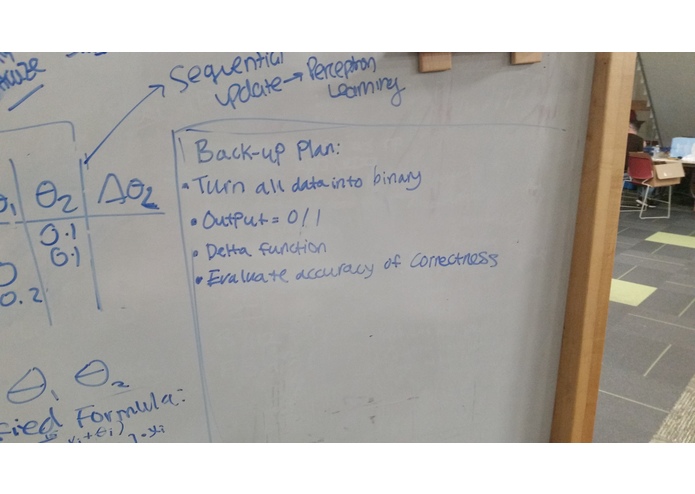 Sequential
update → Perceptron
Learning
θ₁ θ₂ Δθ₂
0.1
0.1
0.2
Back-up Plan:
• Turn all data into binary
• Output = 0/1
• Delta function
• Evaluate accuracy of correctness
θ₁ θ₂
Formula: